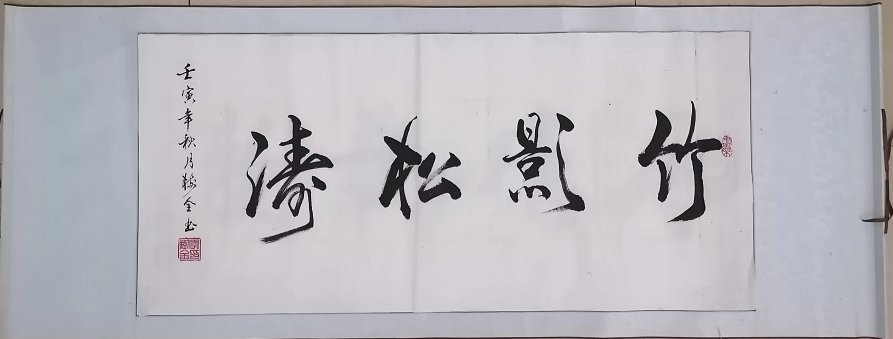 竹影松涛
壬寅年秋月 全书